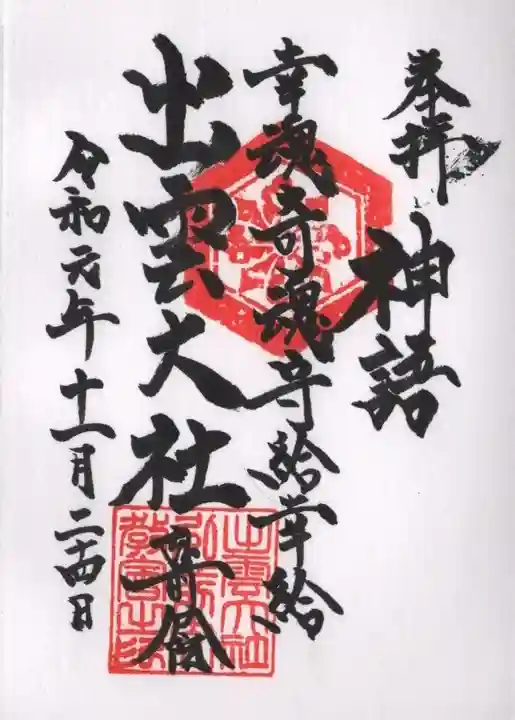 奉拝
神語
幸魂奇魂守給幸給
出雲大社
令和元年十一月二十四日
出雲大社